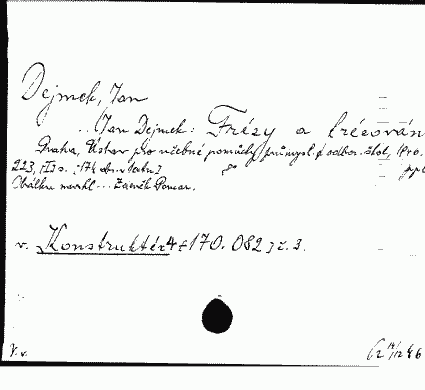 Dejmek, Jan
.. (Jan Dejmek: Frézy a frézován
Praha, Ústav pro učebné pomůcky průmysl. a odbor. škol, (Pro.
223, [I] s. : 174 obr. v textu]
8°
Obálku navrhl ... Zdeněk
v. Konstruktér 4 [170.082] č. 3.
V. v.